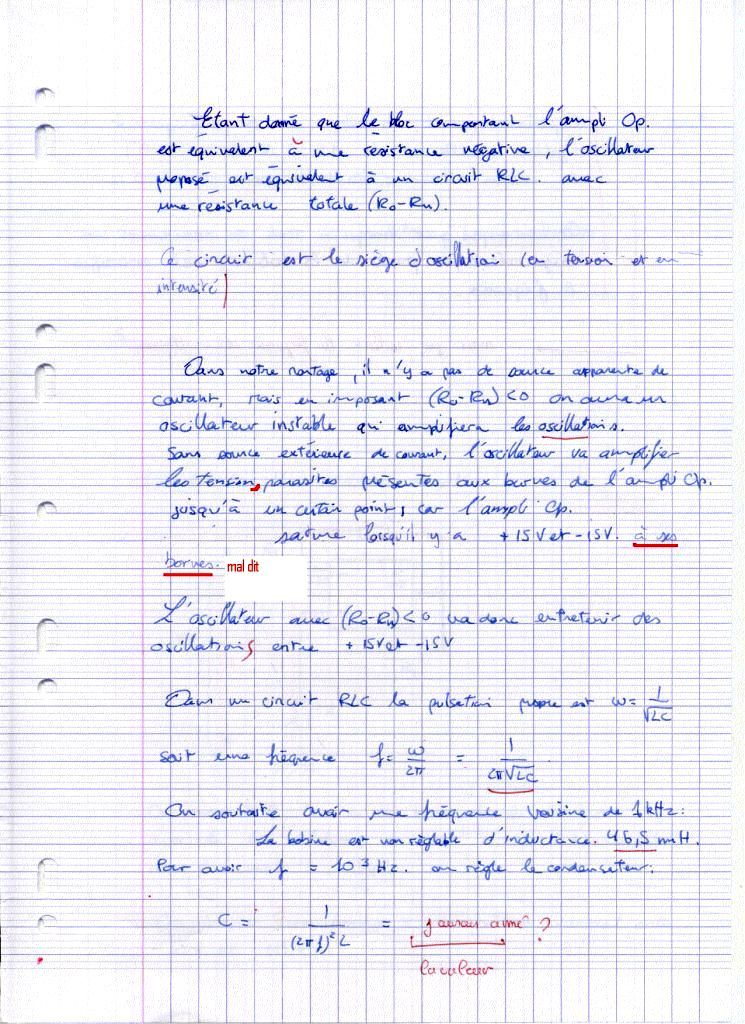 Etant donné que le bloc comportant l'ampli Op.
est équivalent à une résistance négative, l'oscillateur
proposé est équivalent à un circuit RLC. avec
une résistance totale (R₀-Rn).
Ce circuit est le siège d'oscillation (en tension et en
intensité)
Dans notre montage, il n'y a pas de source apparente de
courant, mais en imposant (R₀-Rn)<0 on aura un
oscillateur instable qui amplifiera les oscillations.
Sans source extérieure de courant, l'oscillateur va amplifier
les tensions parasites présentes aux bornes de l'ampli Op.
jusqu'à un certain point, car l'ampli Op.
sature lorsqu'il y a +15V et -15V. à ses
bornes. mal dit
L'oscillateur avec (R₀-Rn)<0 va donc entretenir des
oscillations entre +15V et -15V
Dans un circuit RLC la pulsation propre est ω = 1/√LC
soit une fréquence f = ω/2π = 1/2π√LC
On souhaite avoir une fréquence voisine de 1kHz:
La bobine est non réglable d'inductance. 46,5 mH.
Pour avoir f = 10³ Hz. on règle le condensateur.
C = 1/(2πf)²L = j'aurais aimé ?
la valeur